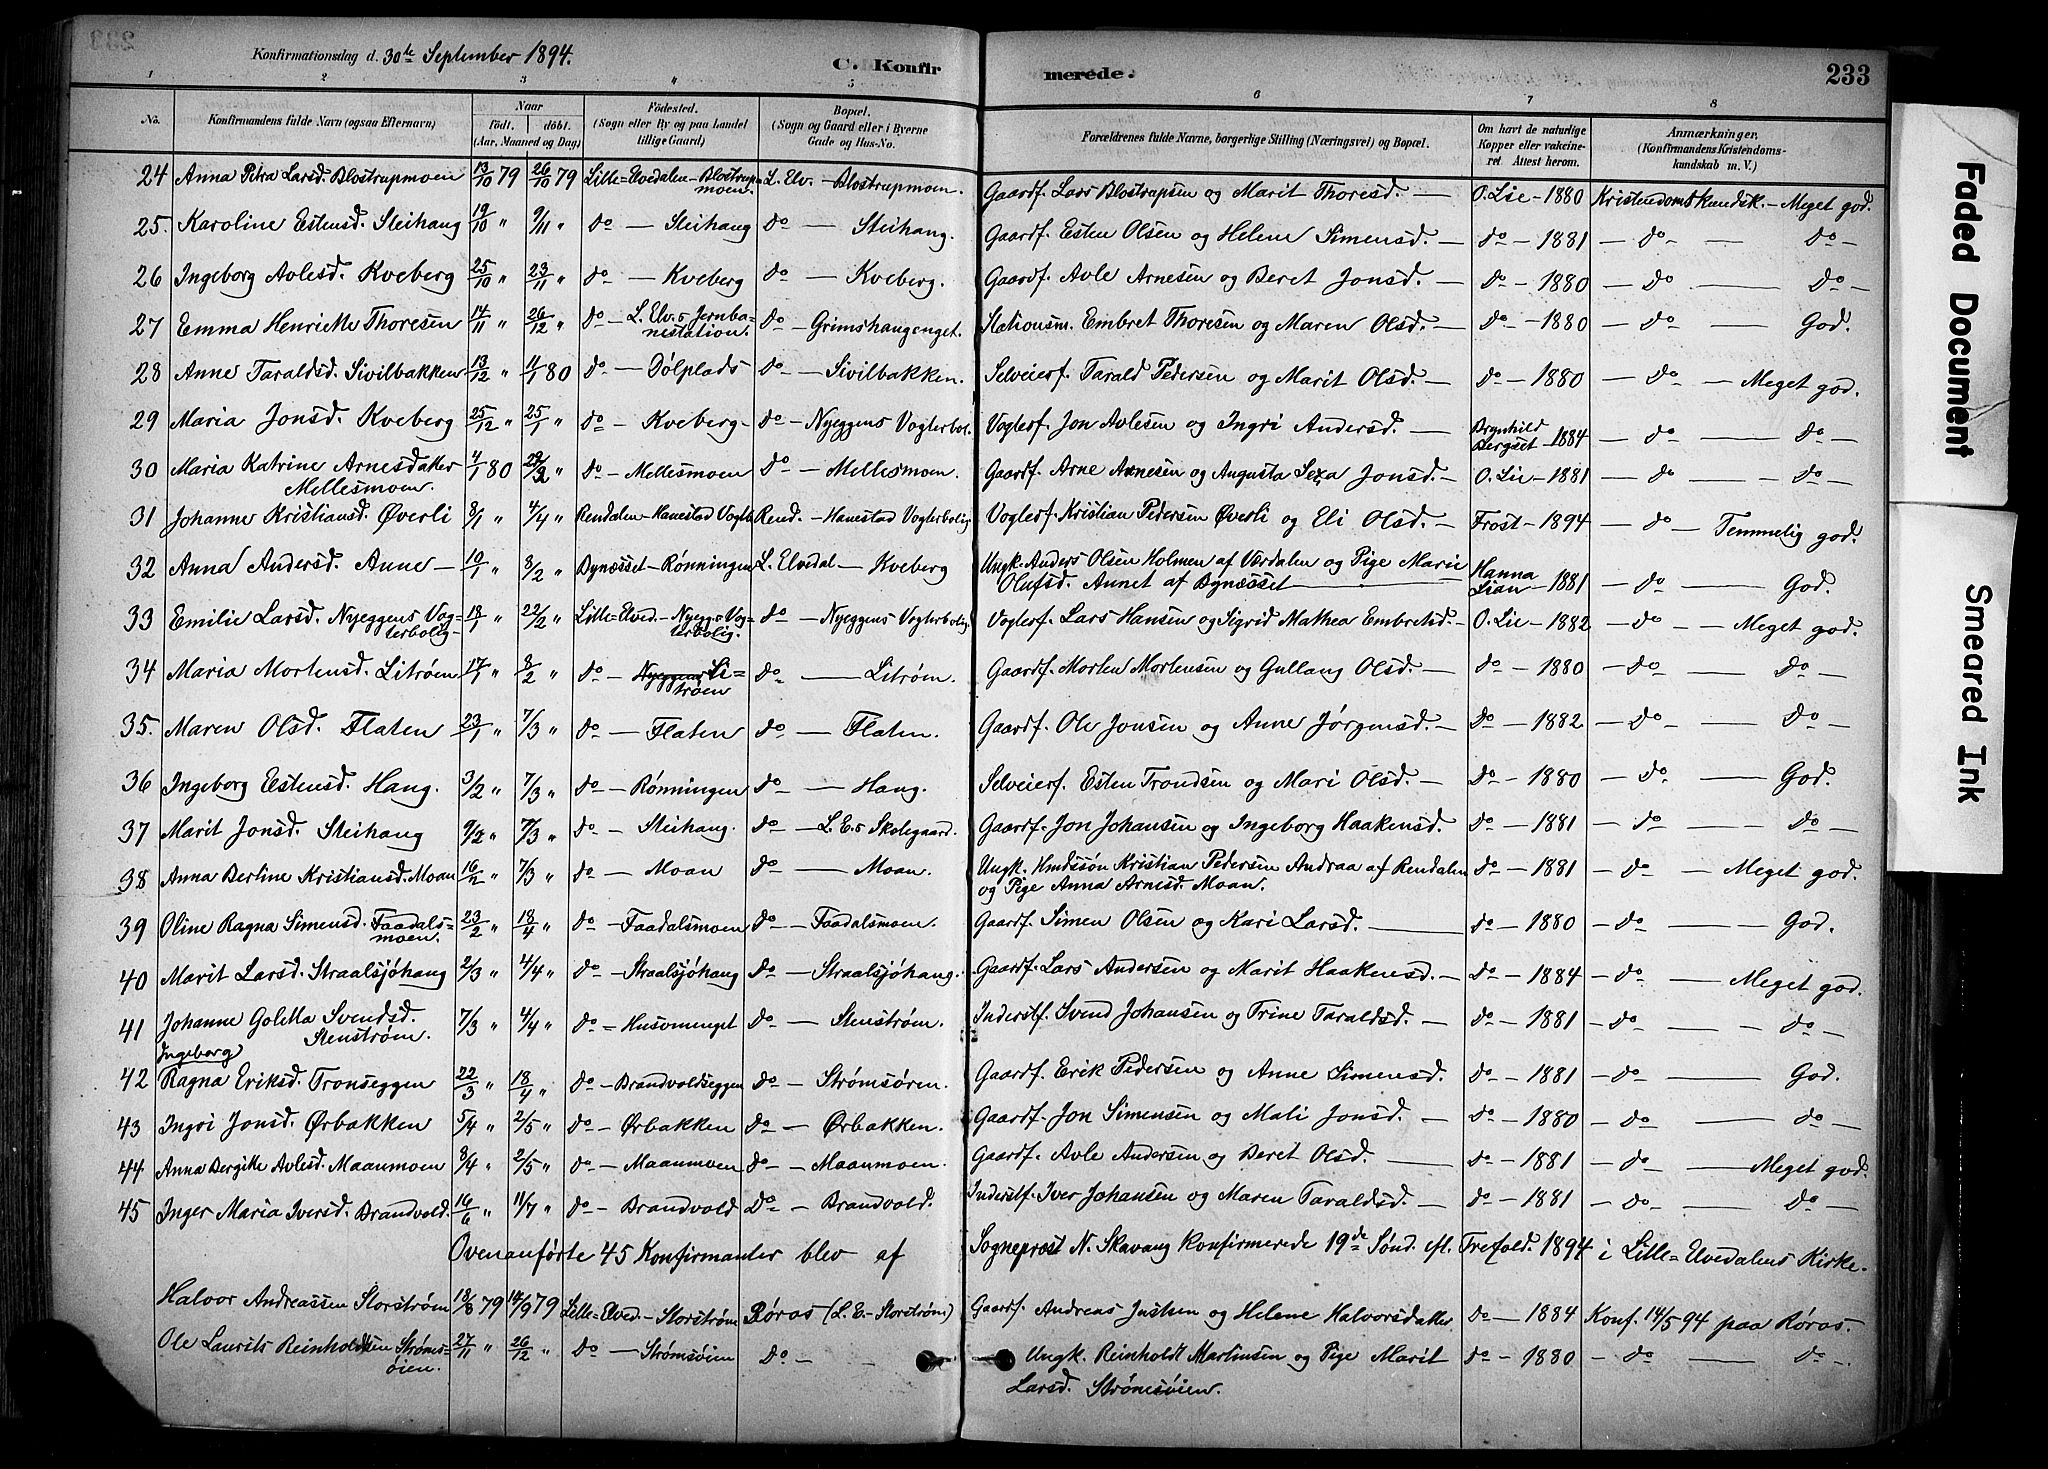 Konfirmationsdag d. 30te September 1894.
C. Konfirmerede.
233
1 2 3 " 5 6 7 8
No. Konfirmandens fulde Navn (ogsaa Efternavn) Naar født. døbt. (Aar, Maaned og Dag) Fødested. (Sogn eller By og paa Landet tillige Gaard) Bopæl. (Sogn og Gaard eller i Byerne Gade og Hus-No. Forældrenes fulde Navne, borgerlige Stilling (Næringsvei) og Bopæl. Om havt de naturlige Kopper eller vaccineret Attest herom. Anmærkninger, (Konfirmandens Kristendomskundskab m. V.)
24 Anna Petra Larsd. Blostrupmoen 13/10 79 26/10 79 Lille=Elvedalen – Blostrupmoen L. Elv. – Blostrupmoen. Gaardf. Lars Blostrupsen og Marit Thoresd. — O. Lie – 1880 Kristendomskundsk. – Meget god.
25. Karoline Estensd. Steihaug 19/10 " 9/11 " do — Steihaug do — Steihaug. Gaardf. Esten Olsen og Helene Simensd. — do – 1881 – do — do –
26 Ingeborg Avlesd. Kveberg 25/10 " 23/11 " do — Kveberg do — Kveberg. Gaardf. Avle Arnesen og Beret Jonsd. — do – 1880 – do — do –
27 Emma Henriette Thoresen 14/11 " 26/12 " do – L. Elv.s Jernbanestation. do – Grimshaugenget. Stationsm. Embret Thoresen og Maren Olsd. – do – 1880 – do — God.
28 Anne Taraldsd. Sivilbakken 13/12 " 11/1 80 do — Dølplads do — Sivilbakken. Selveierf. Tarald Pedersen og Marit Olsd. – do – 1880 – do — Meget god.
29 Maria Jonsd. Kveberg 25/12 " 25/1 " do — Kveberg – do – Nyeggens Vogterbol. Vogterf. Jon Avlesen og Ingri Andersd. – Brynhild Bergset – 1884 – do — do –
30 Maria Katrine Arnesdatter Mellesmoen. 4/1 80 29/2 " do – Mellesmoen do – Mellesmoen. Gaardf. Arne Arnesen og Augusta Sexa Jonsd. – O. Lie – 1881 – do — do –
31 Johanne Kristiansd. Øverli 8/1 " 4/4 " Rendalen – Hanestad Vogtb Rend. – Hanestad Vogterbolig Vogterf. Kristian Pedersen Øverli og Eli Olsd. – Frost – 1894 – do – Temmelig god.
32 Anna Andersd. Anne – 10/1 " 8/2 " Bynæsset – Rønningen L. Elvedal – Kveberg Ungk. Anders Olsen Holmen af Værdalen og Pige Marie Olufsd. Annet af Bynæsset — Hanna Lian – 1881 – do — God.
33 Emilie Larsd. Nyeggens Vogterbolig – 18/1 " 22/2 " Lille=Elved. – Nyeggs Vogterbolig. do – Nyeggens Vogterbolig. Vogterf. Lars Hansen og Sigrid Mathea Embretsd. – O. Lie – 1882 – do — Meget god.
34 Maria Mortensd. Litrøen 17/1 " 8/2 " do – Nyeggens Litrøen do — Litrøen. Gaardf. Morten Mortensen og Gullaug Olsd. – do – 1880 – do — do
35. Maren Olsd. Flaten 23/1 " 7/3 " do – Flaten do – Flaten. Gaardf. Ole Jonsen og Anne Jørgensd. – do – 1882 – do — do –
36 Ingeborg Estensd. Haug. 3/2 " 7/3 " do – Rønningen do – Haug. Selveierf. Esten Trondsen og Mari Olsd. – do – 1880 – do — God.
37 Marit Jonsd. Steihaug 9/2 " 7/3 " do – Steihaug. do – L. E.s Skolegaard. Gaardf. Jon Johansen og Ingeborg Haakensd. do – 1881 – do — do –
38 Anna Berline Kristiansd. Moan 16/2 " 7/3 " do – Moan do — Moan. Ungk. Smedssøn Kristian Pedersen Andraa af Rendalen og Pige Anna Arnesd. Moan. do – 1881 – do – Meget god.
39 Oline Ragna Simensd. Faadalsmoen. 23/2 " 18/4 " do – Faadalsmoen do – Faadalsmoen. Gaardf. Simen Olsen og Kari Larsd. — do – 1880 – do — God.
40 Marit Larsd. Straalsjøhaug 2/3 " 4/4 " do – Straalsjøhaug do – Straalsjøhaug. Gaardf. Lars Andersen og Marit Haakensd. – do – 1884 – do — Meget god.
41 Johanne Goletta Svendsd. Stenstrøm. 7/3 " 4/4 " do = Husomenget do – Stenstrøm. Inderstf. Svend Johansen og Trine Taraldsd. – do – 1881 – do — do –
42 Ingeborg Ragna Eriksd. Tronseggen 22/3 " 18/4 " do – Brandvoldseggen do – Strømsøren. Gaardf. Erik Pedersen og Anne Simensd. do – 1881 – do — God.
43 Ingri Jonsd. Ørbakken 5/4 " 2/5 " do – Ørbakken do – Ørbakken. Gaardf. Jon Simensen og Mali Jonsd. – do – 1880 – do — do
44 Anna Bergitte Avlesd. Maanmoen 8/4 " 2/5 " do – Maanmoen do – Maanmoen. Gaardf. Avle Andersen og Beret Olsd. — do – 1881 – do — Meget god.
45 Inger Maria Iversd. Brandvold. 16/6 " 11/7 " do – Brandvold do – Brandvold. Inderstf. Iver Johansen og Maren Taraldsd. – do – 1881 – do — do –
Ovenanførte 45 Konfirmanter blev af Sogneprest N. Skavang konfirmerede 19de Sønd. eft. Trefold. 1894 i Lille=Elvedalens Kirke.
Halvor Andreassen Storstrøm 18/8 79 14/9 79 Lille=Elved. – Storstrøm Røros (L. E. – Storstrøm) Gaardf. Andreas Justsen og Helene Halvorsdatter do – 1884 Konf. 14/5 94 paa Røros.
Ole Laurits Reinholdtsen Strømsøien. 27/11 " 26/12 " do – Strømsøien do – Ungk. Reinholdt Martinsen og Pige Marit Larsd. Strømsøien. do – 1880 – do — do –
Faded Document
Smeared Ink